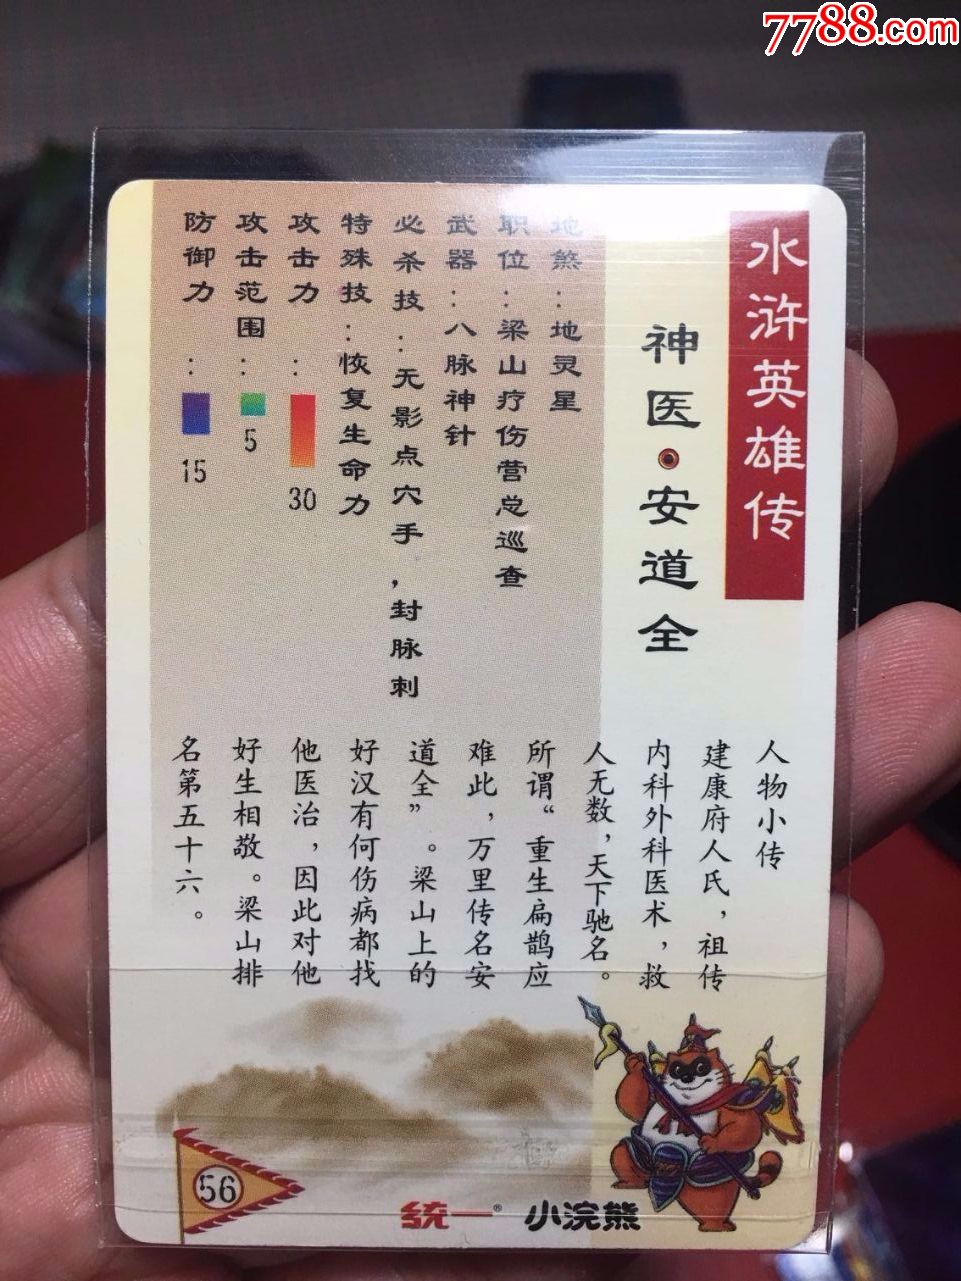 7788.com
水浒英雄传
神医·安道全
地煞：地灵星
职位：梁山疗伤营总巡查
武器：八脉神针
必杀技：无影点穴手，封脉刺
特殊技：恢复生命力
攻击力：30
攻击范围：5
防御力：15
人物小传
建康府人氏，祖传
内科外科医术，救
人无数，天下驰名。
所谓“重生扁鹊应
难此，万里传名安
道全”。梁山上的
好汉有何伤病都找
他医治，因此对他
好生相敬。梁山排
名第五十六。
56
统一® 小浣熊